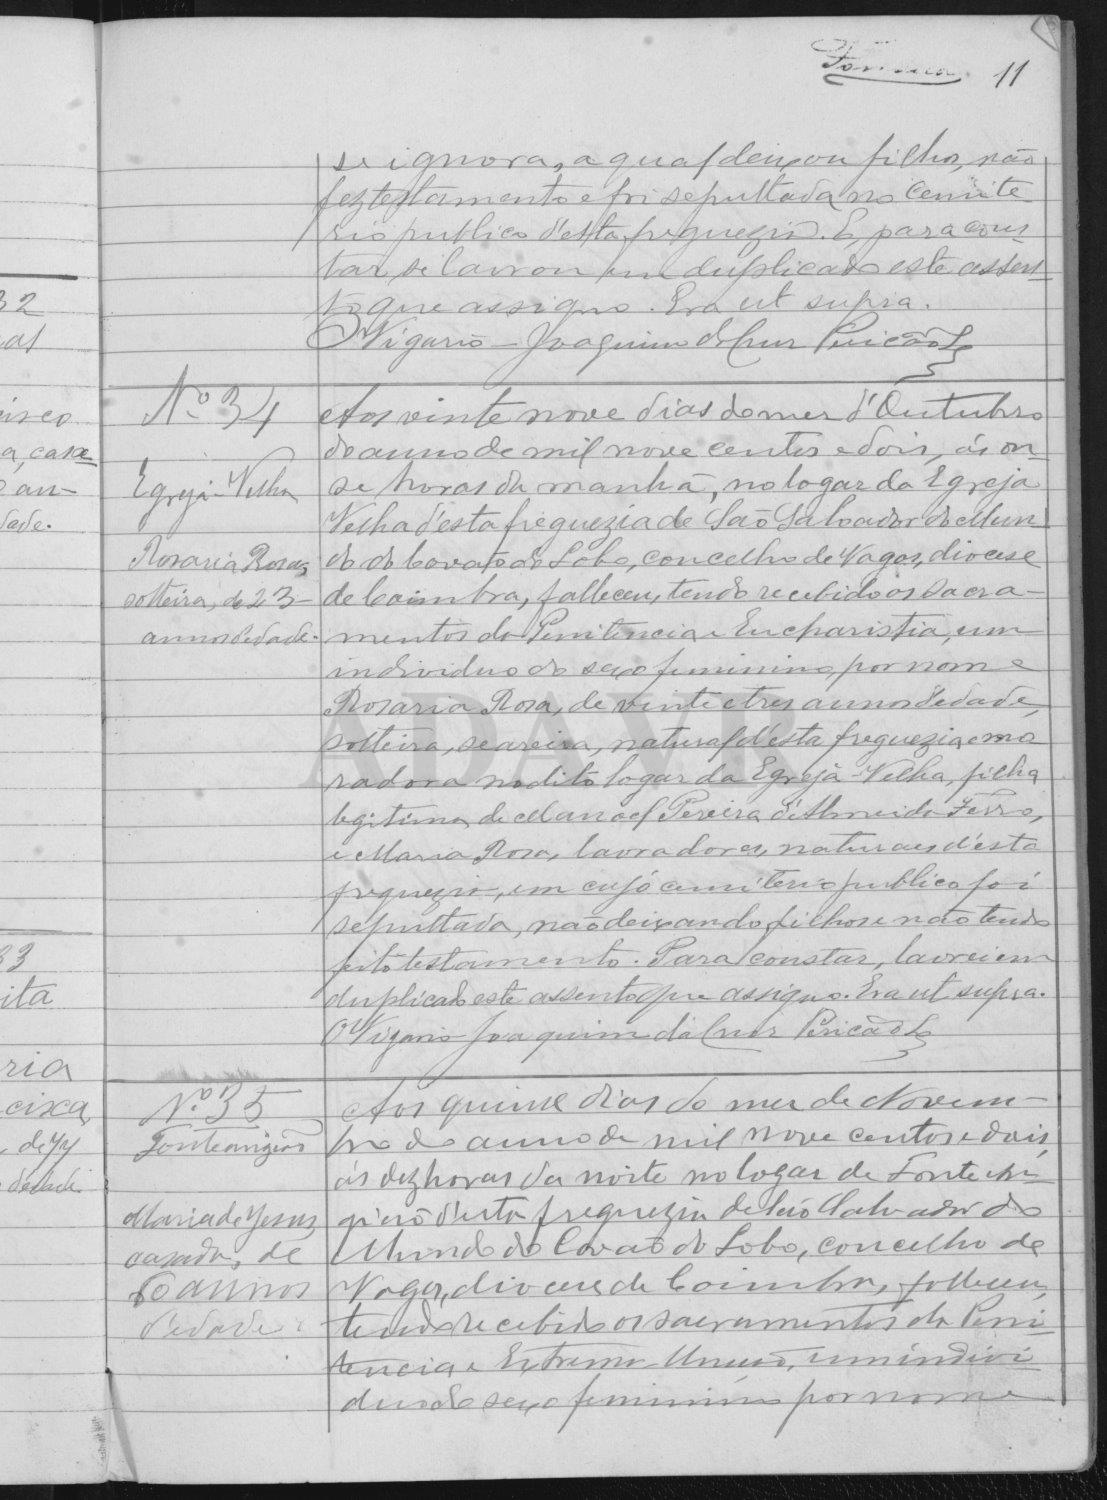 11
se ignora, a qual deixou filhos, não
fez testamento e foi sepultada no cemite
rio publico d'esta freguezia. E, para cons-
tar, se lavrou em duplicado este assen-
to que assigno. Era ut supra.
O Vigario - Joaquim da Cruz Pericão
Nº 34
Egreja-Velha
Rosaria Rosa,
solteira, de 23
annos d'edade.
Aos vinte nove dias do mez d'Outubro
do anno de mil nove centos e dois, ás on-
se horas da manhã, no logar da Egreja
Velha d'esta freguezia de São Salvador do Mun
do do Covão do Lobo, concelho de Vagos, diocese
de Coimbra, falleceu, tendo recebido os sacra-
mentos da Penitencia e Eucharistia, um
individuo do sexo feminino, por nome
Rosaria Rosa, de vinte e tres annos d'edade,
solteira, seareira, natural d'esta freguezia e mo
radora no dito logar da Egreja-Velha, filha
legitima de Manoel Pereira d'Almeida Ferro,
e Maria Rosa, lavradores, naturaes d'esta
freguezia, em cujo cemiterio publico foi
sepultada, não deixando filhos e não tendo
feito testamento. Para constar, lavrei em
duplicado este assento que assigno. Era ut supra.
O Vigario Joaquim da Cruz Pericão
Nº 35
Fonte angião
Maria de Jesus,
casada, de
60 annos
d'edade.
Aos quinse dias do mez de Novem-
bro do anno de mil nove centos e dois,
ás dez horas da noite no logar de Fonte An-
gião d'esta freguezia de São Salvador do
Mundo do Covão do Lobo, concelho de
Vagos, diocese de Coimbra, falleceu,
tendo recebido os sacramentos da Peni-
tencia e Extrema-Uncção, um indivi
duo do sexo feminino por nome
32
al
cisco
a, casa
an-
dade.
33
ita
ria
cisca
de 74
d'edade.
ADAVR